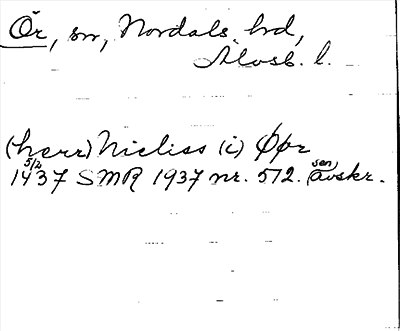 Ör, sn, Nordals hd,
Älvsb. l.
(herr) Nicliss (i) Øør
5/2 1437 SMR 1937 nr. 512. (sen) avskr.